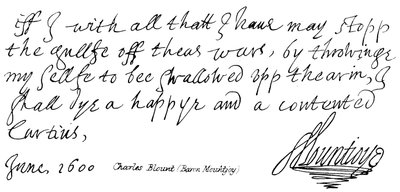 Iff I with all thatt I haue may stopp
the gullfe off theas wars, by throwinge
my sellfe to bee swallowed vpp thearin, I
shall dye a happye and a contented
Curtius,
June, 1600 Charles Blount (Baron Mountjoy) Mountioye